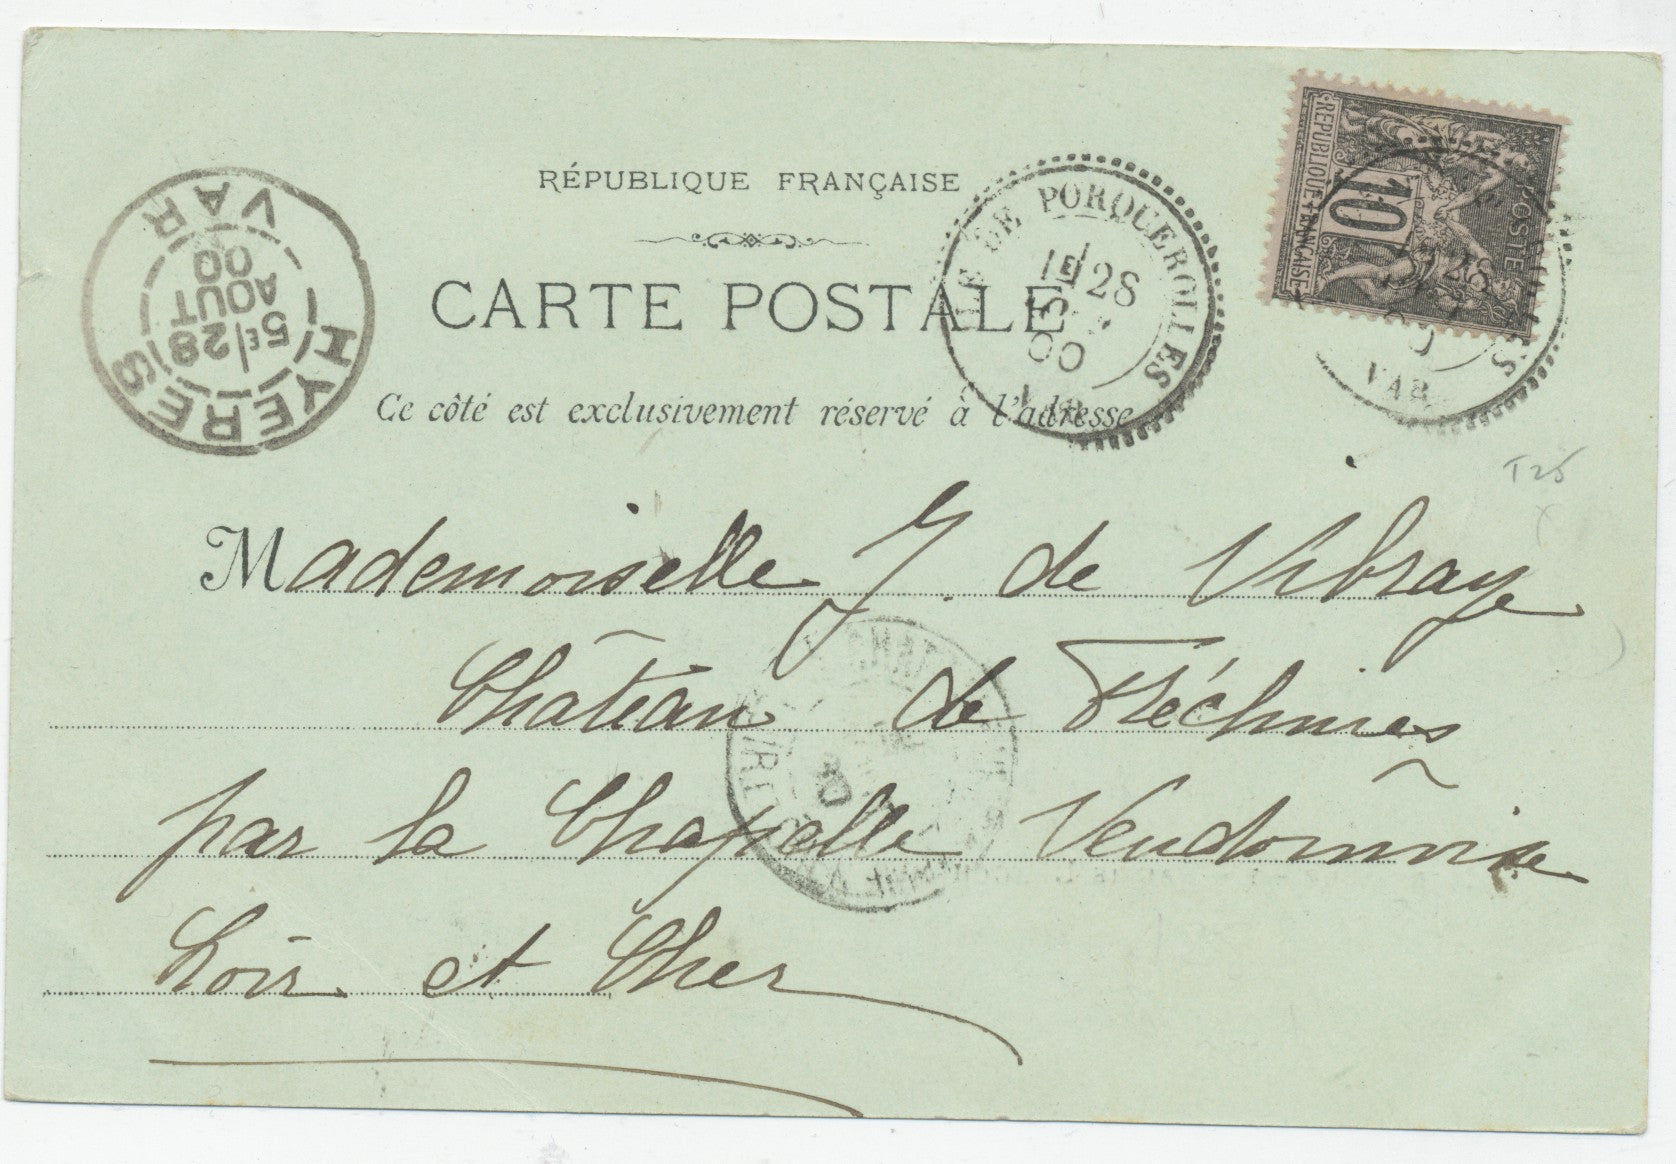 RÉPUBLIQUE FRANÇAISE
CARTE POSTALE
Ce côté est exclusivement réservé à l'adresse
HYERES
5E/28
AOUT
00
VAR
ILE DE PORQUEROLLES
1E/28
00
VAR
RÉPUBLIQUE FRANÇAISE
10
POSTE
28
VAR
T25
Mademoiselle J. de Vibraye
Château de Fréchines
par la Chapelle Vendômoise
Loir et Cher